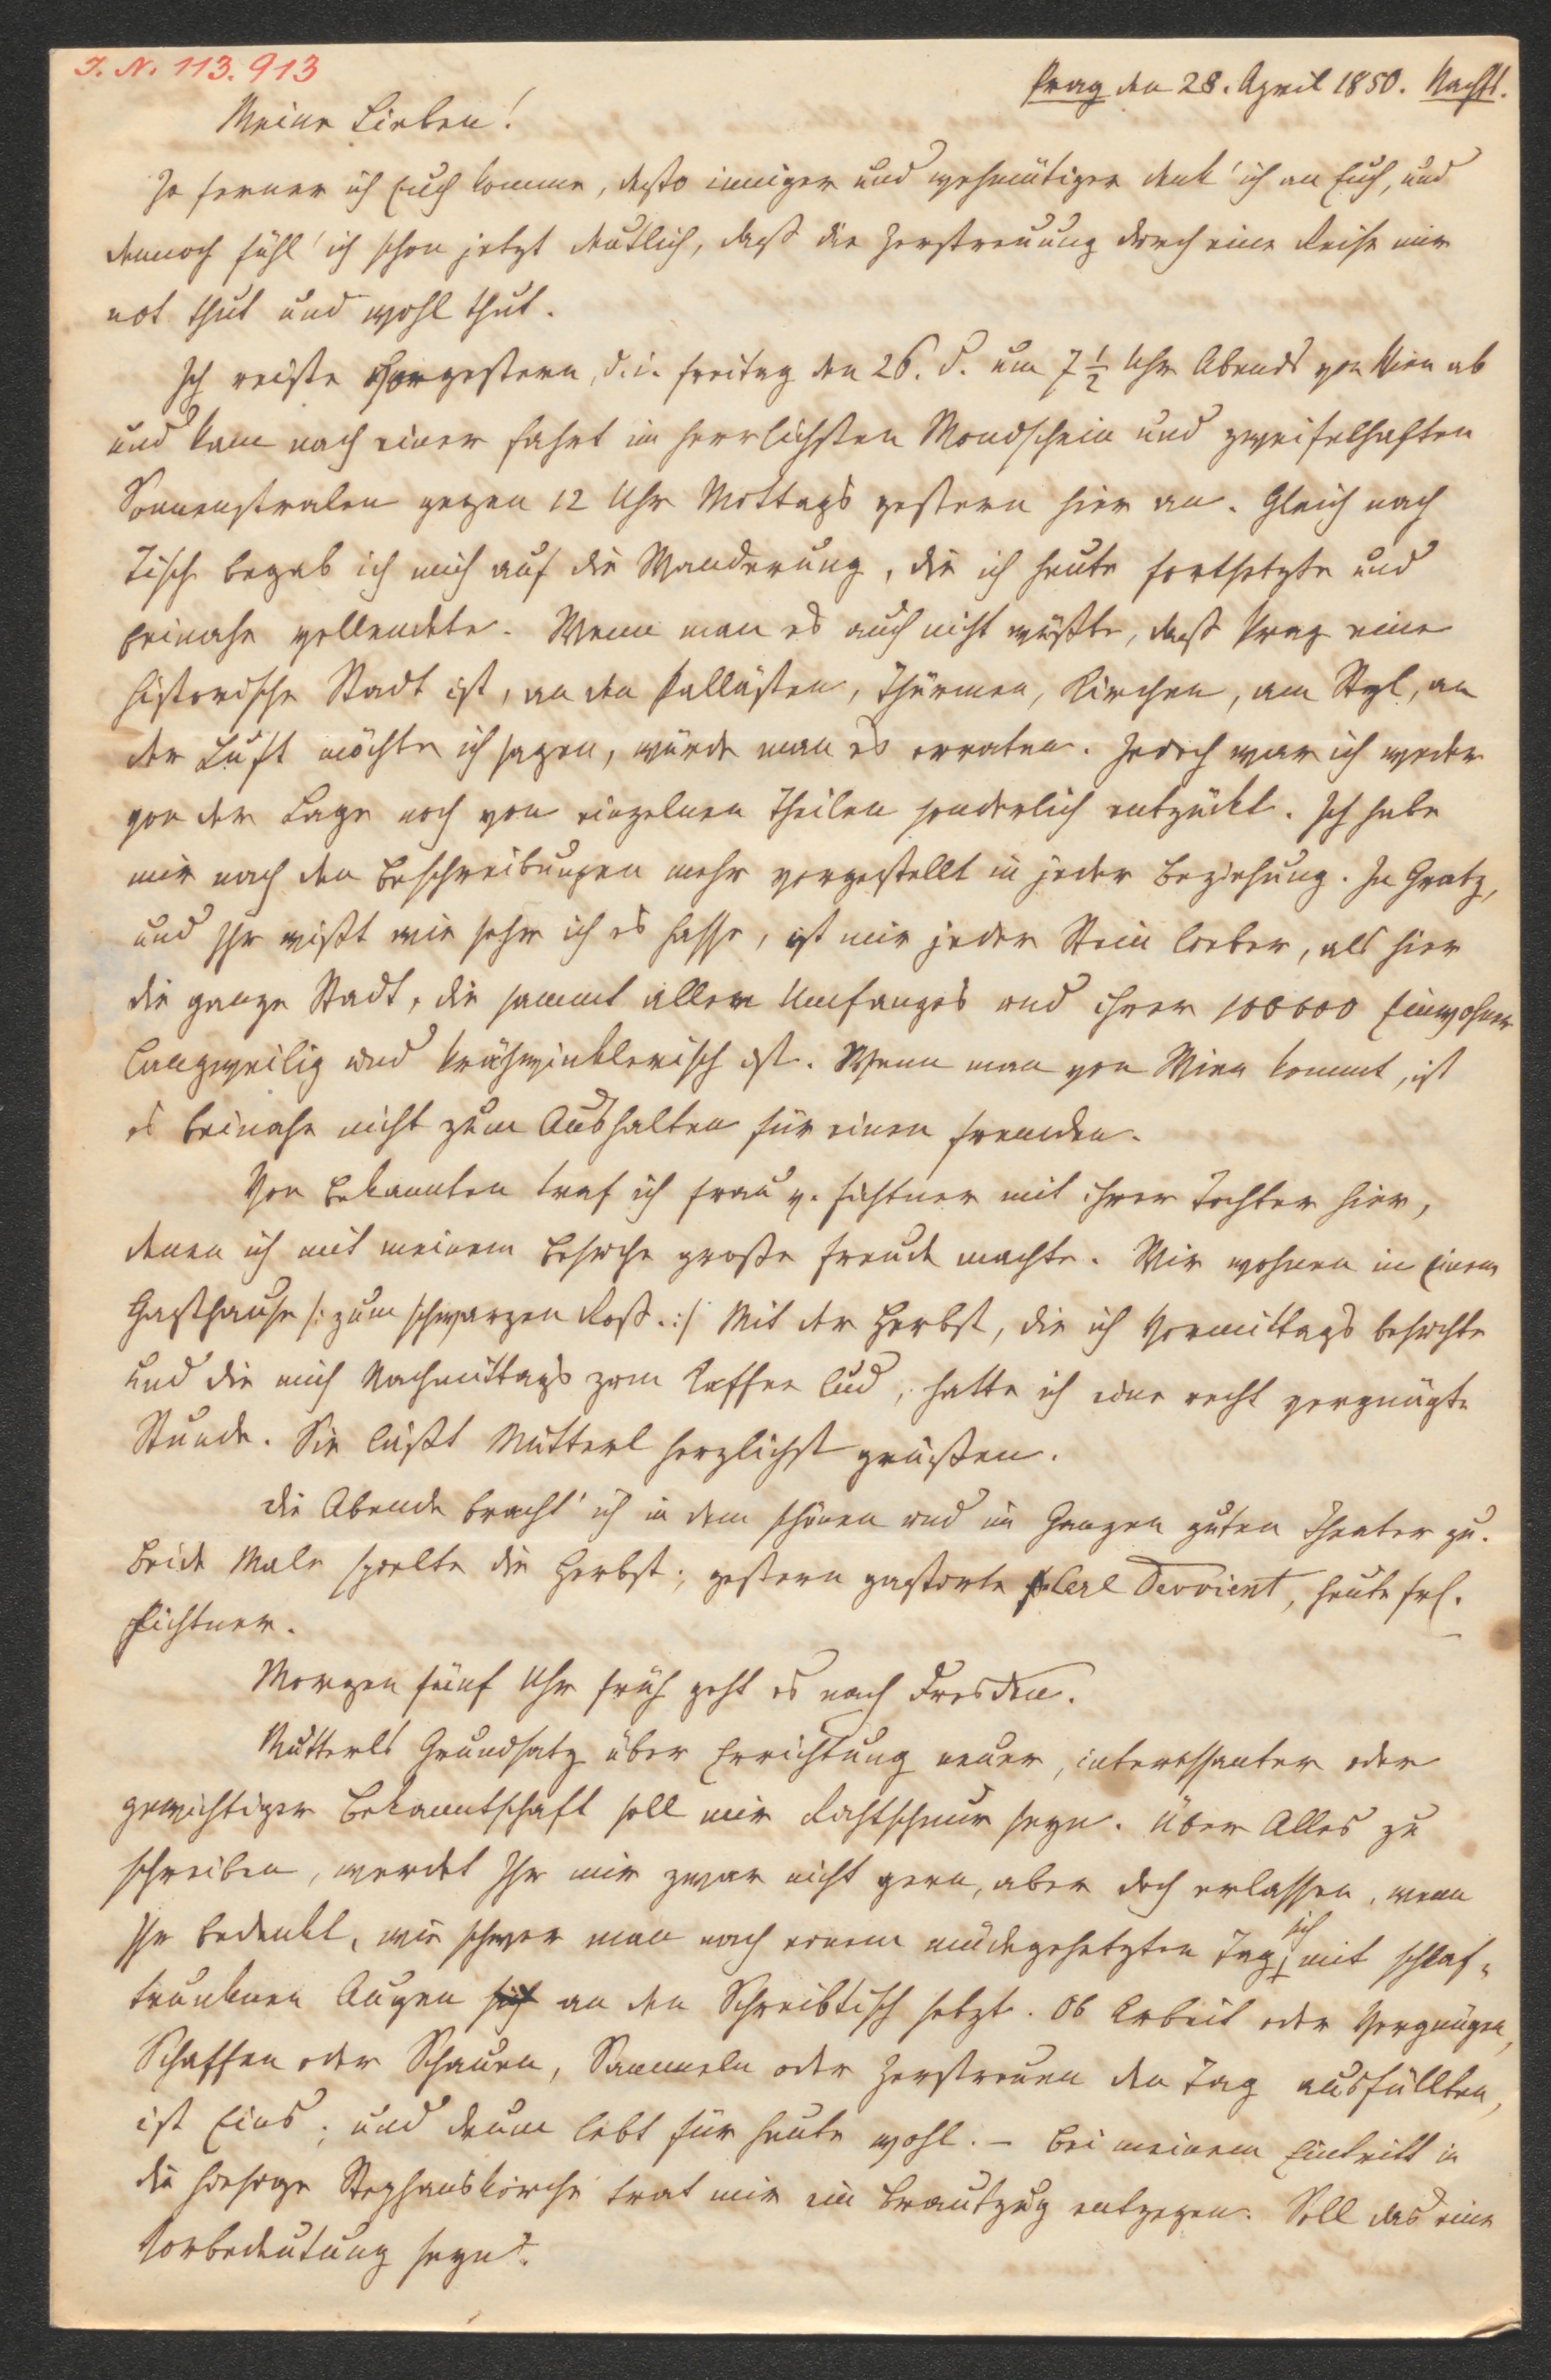 I. N. 113.913
Prag den 28. April 1850. Nachts.
Meine Lieben!
Je ferner ich Euch komme, desto inniger und wehmütiger denk' ich an Euch, und
dennoch fühl' ich schon jetzt deutlich, daß die Zerstreuung durch eine Reise mir
not thut und wohl thut.
Ich reiste vorgestern, d. i. Freitag den 26. d. um 7 ½ Uhr Abends von Wien ab
und kam nach einer Fahrt im herrlichsten Mondschein und zweifelhaften
Sonnenstralen gegen 12 Uhr Mittags gestern hier an. Gleich nach
Tisch begab ich mich auf die Wanderung, die ich heute fortsetzte und
beinahe vollendete. Wenn man es auch nicht wüßte, daß Prag eine
historische Stadt ist, an den Pallästen, Thürmen, Kirchen, am Styl, an
der Luft möchte ich sagen, würde man es erraten. Jedoch war ich weder
von der Lage noch von einzelnen Theilen sonderlich entzückt. Ich habe
mir nach den Beschreibungen mehr vorgestellt in jeder Beziehung. In Gratz,
und Ihr wißt wie sehr ich es hasse, ist mir jeder Stein lieber, als hier
die ganze Stadt, die sammt allem Umfanges und ihrer 100000 Einwohner
langweilig und krähwinklerisch ist. Wenn man von Wien kommt, ist
es beinahe nicht zum Aushalten für einen Fremden.
Von Bekannten traf ich Frau v. Fichtner mit ihrer Tochter hier,
denen ich mit meinem Besuche große Freude machte. Wir wohnen in Einem
Gasthause /: zum schwarzen Roß. :/ Mit der Herbst, die ich Vormittags besuchte
und die mich Nachmittags zum Kaffee lud, hatte ich eine recht vergnügte
Stunde. Sie läßt Mutterl herzlichst grüßen.
Die Abende bracht' ich in dem schönen und im Ganzen guten Theater zu.
Beide Male spielte die Herbst; gestern gastirte Carl Devrient, heute Frl.
Fichtner.
Morgen fünf Uhr früh geht es nach Dresden.
Mutterls Grundsatz über Errichtung neuer, interessanter oder
gewichtiger Bekanntschaft soll mir Richtschnur seyn. Über Alles zu
schreiben, werdet Ihr mir zwar nicht gern, aber doch erlassen, wenn
Ihr bedenkt, wie schwer man nach einem müdegehetzten Tag sich mit schlaf-
trunknen Augen sich an den Schreibtisch setzt. Ob Arbeit oder Vergnügen,
Schaffen oder Schauen, Sammeln oder Zerstreuen den Tag ausfüllten,
ist Eins; und drum lebt für heute wohl. – Bei meinem Eintritt in
die hiesige Stephanskirche trat mir ein Brautzug entgegen. Soll das eine
Vorbedeutung seyn?